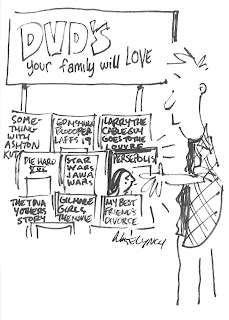 DVD'S
your family will LOVE
SOME-
THING
WITH
ASHTON
KUT
LARRY THE
CABLE GUY
GOES TO THE
LOUVRE
LAFFS 19
DIE HARD
STAR
WARS:
JAWA
WARS
PERSEPOLIS
THE TINA
YOTHERS
STORY
GILMORE
GIRLS
THE MOVIE
MY BEST
FRIEND'S
DIVORCE